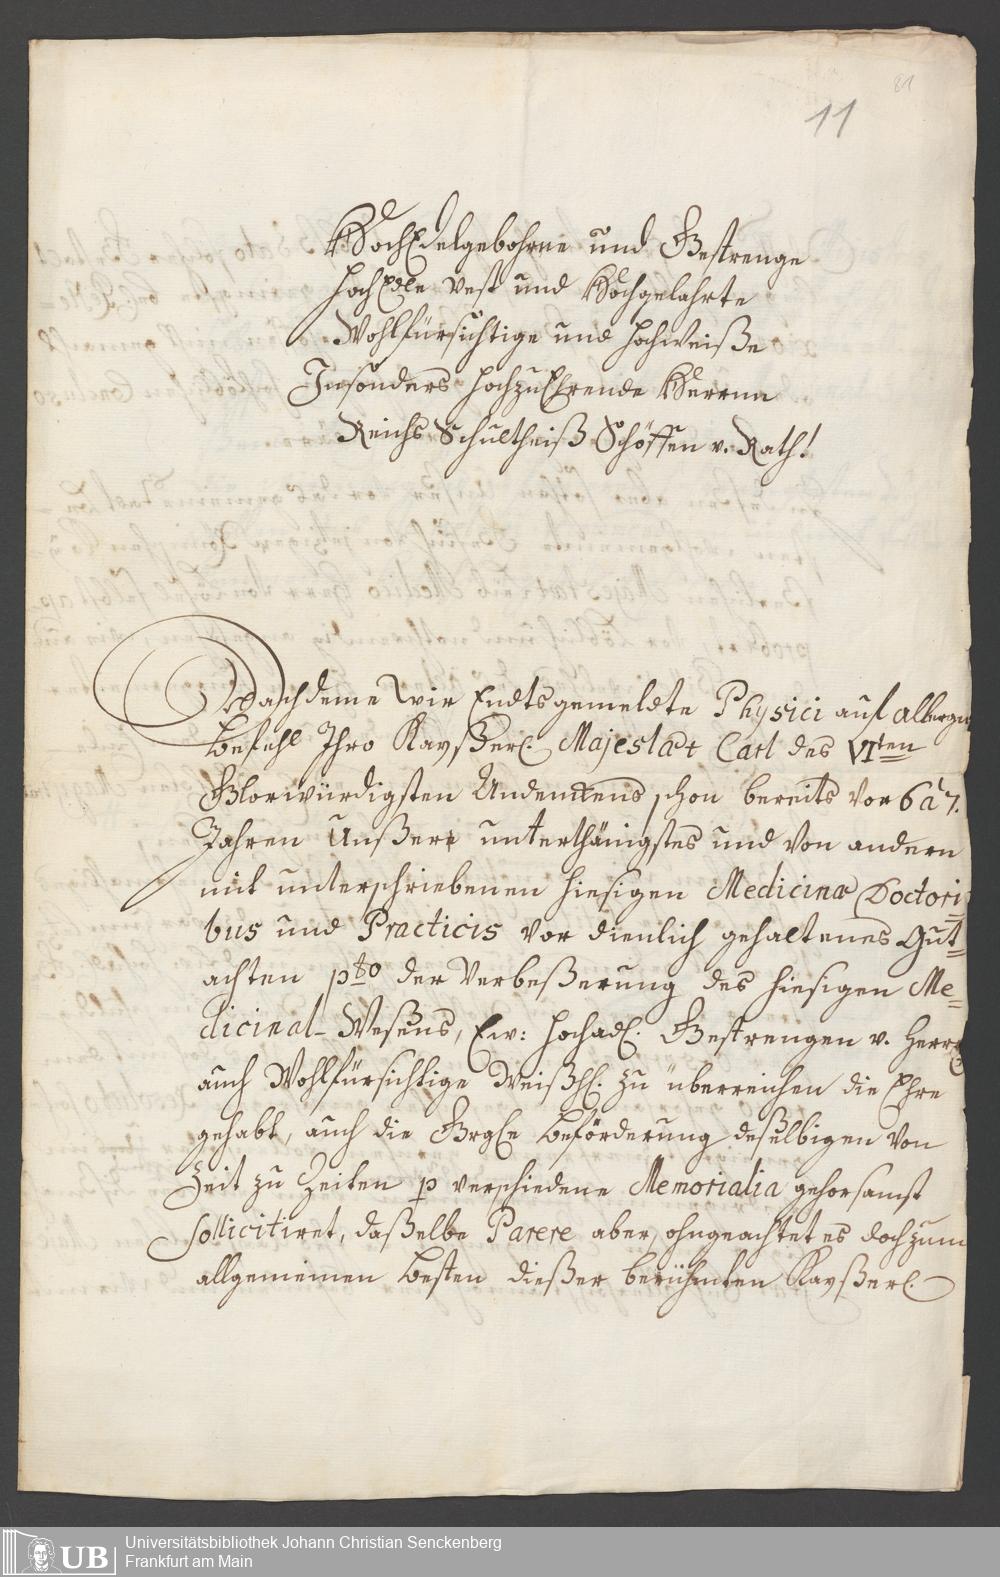 81
11
HochEdelgebohrne und Gestrenge
HochEdle Vest und Hochgelahrte
Wohlfürsichtige und Hochweiße
Insonders HochzuEhrende Herrnn
Reichs Schultheiß Schöffen v. Rath!
Nachdeme Wir Endtsgemeldte Physici auf allergn
Befehl Ihro Kayßerl. Majestät Carl des VIten
Glorwürdigsten Andenckens schon bereits vor 6 à 7.
Jahren Unßer unterthänigstes und von andern
mit unterschriebenen hiesigen Medicinæ Doctori=
bus und Practicis vor dienlich gehaltenes Gut=
achten pto der Verbeßerung des hiesigen Me=
dicinal-Wesens, Ew: Hochadl. Gestrengen v. Herrl.
auch Wohlfürsichtige Weißh. zu überreichen die Ehre
gehabt, auch die Beförderung deßelbigen von
Zeit zu Zeiten p verschiedene Memorialia gehorsamst
sollicitiret, daßelbe Parere aber, ohngeachtet es doch zum
allgemeinen Besten dießer berühmten Kayßerl.
UB
Universitätsbibliothek Johann Christian Senckenberg
Frankfurt am Main